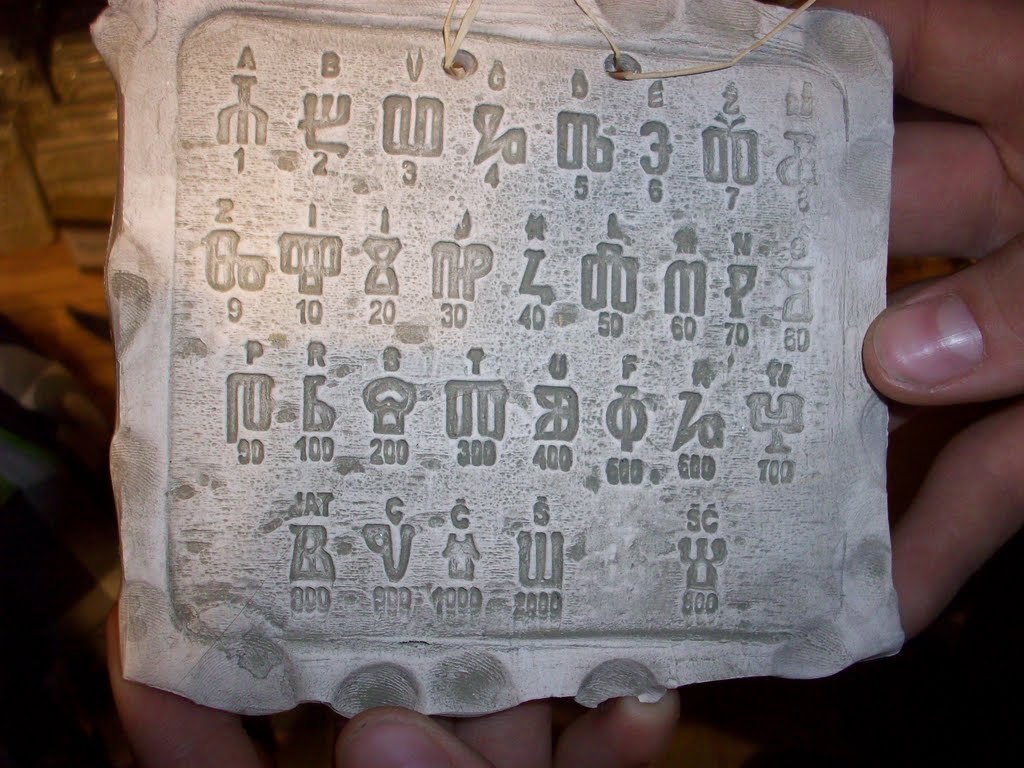 A B V G D E Ž
Ⰰ Ⰱ Ⰲ Ⰳ Ⰴ Ⰵ Ⰶ
1 2 3 4 5 6 7
Z I I J K L M N
Ⰸ Ⰻ Ⰹ Ⰼ Ⰽ Ⰾ Ⰿ Ⱀ Ⱁ
9 10 20 30 40 50 60 70 80
P R S T U F H
Ⱂ Ⱃ Ⱄ Ⱅ Ⱆ Ⱇ Ⱈ Ⱉ
90 100 200 300 400 500 600 700
JAT C Č Š ŠĆ
Ⱑ Ⱌ Ⱍ Ⱎ Ⱋ
800 900 1000 2000 800